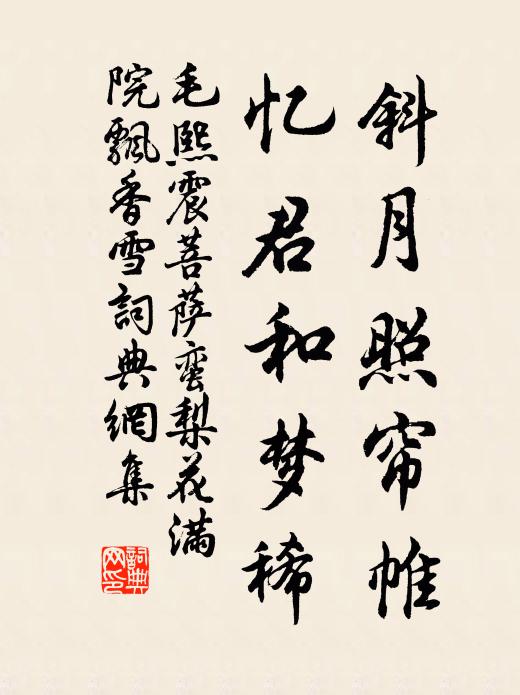 斜月照帘帷
忆君和梦稀
毛熙震菩萨蛮梨花满
院飘香雪詞典網集
詞典
网印